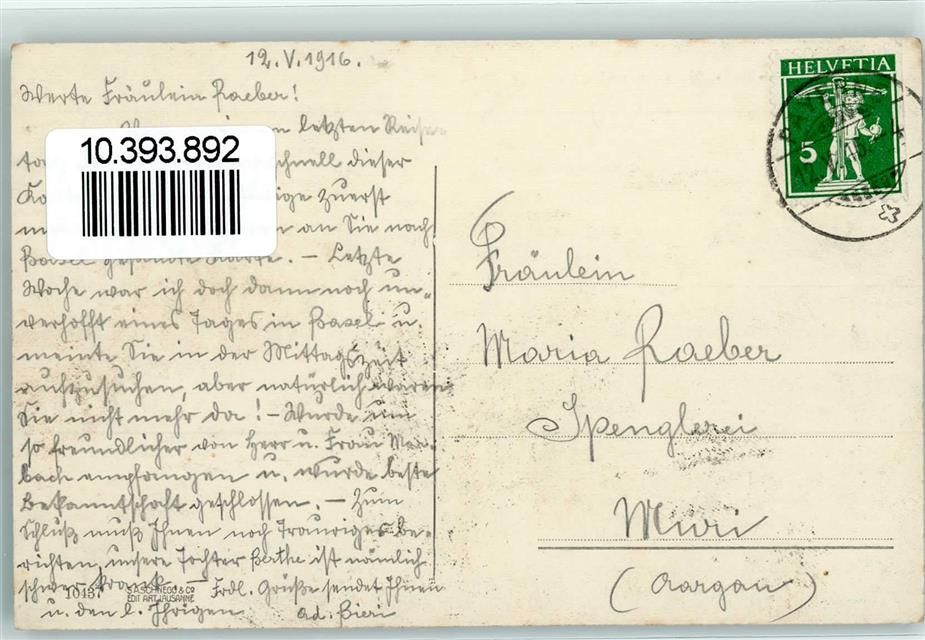 12.V.1916.
Werte Fräulein Raeber!
letzten Reise
10.393.892
schnell dieser
zuerst
an Sie nach
Basel gesandte Karte. – Letzte
Woche war ich doch dann noch un-
verhofft eines Tages in Basel u.
meinte Sie in der Mittagszeit
aufzusuchen, aber natürlich waren
Sie nicht mehr da! – Wurde um
so freundlicher von Herr u. Frau
bach empfangen u. wurde beste
Bekanntschaft geschlossen. – Zum
Schluß muß Ihnen noch Trauriges be-
richten, unsere Tochter Berthe ist nämlich
schwer krank. – Frdl. Grüße sendet Ihnen
u. den l. Ihrigen Ad. Bieri
10437
S.A. SCHNEGG & Co
EDIT. ART. LAUSANNE
HELVETIA
5
Fräulein
Maria Raeber
Spenglerei
Muri
(Aargau)